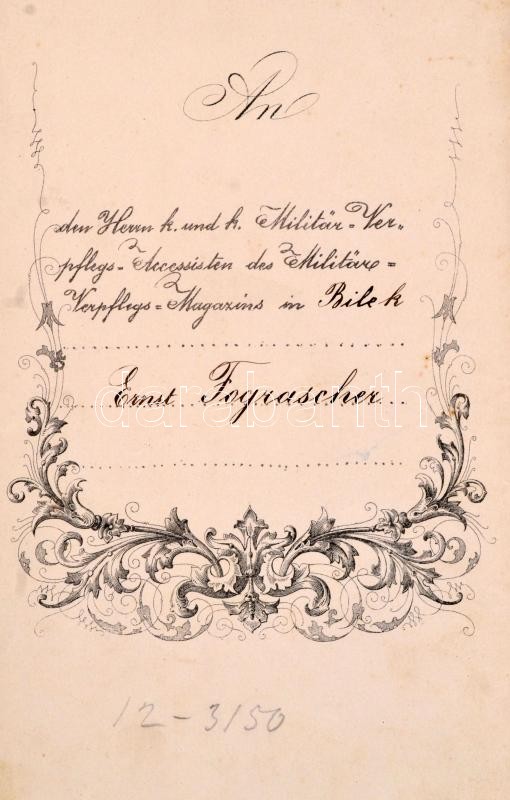 An
den Herrn k. und k. Militär-Ver-
pflegs-Accessisten des Militär-
Verpflegs-Magazins in Bilek
Ernst Fograscher
darabanth
12-3150